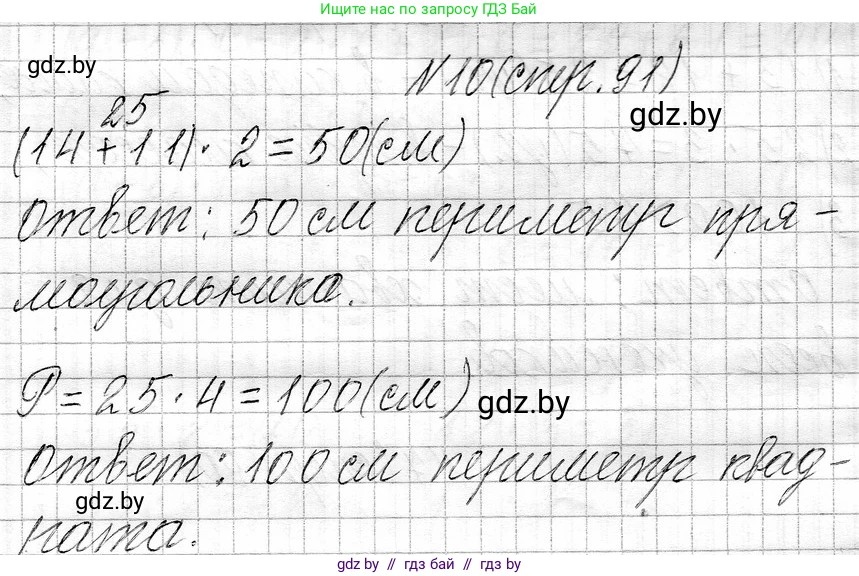 Ищите нас по запросу ГДЗ Бай
gdz.by
N10(стр.91)
gdz.by
25
(14+11)·2=50(см)
Ответ: 50 см периметр пря-
моугольника.
P=25·4=100(см)
gdz.by
Ответ: 100 см периметр квад-
gdz.by
рата.
gdz.by // гдз бай // гдз by